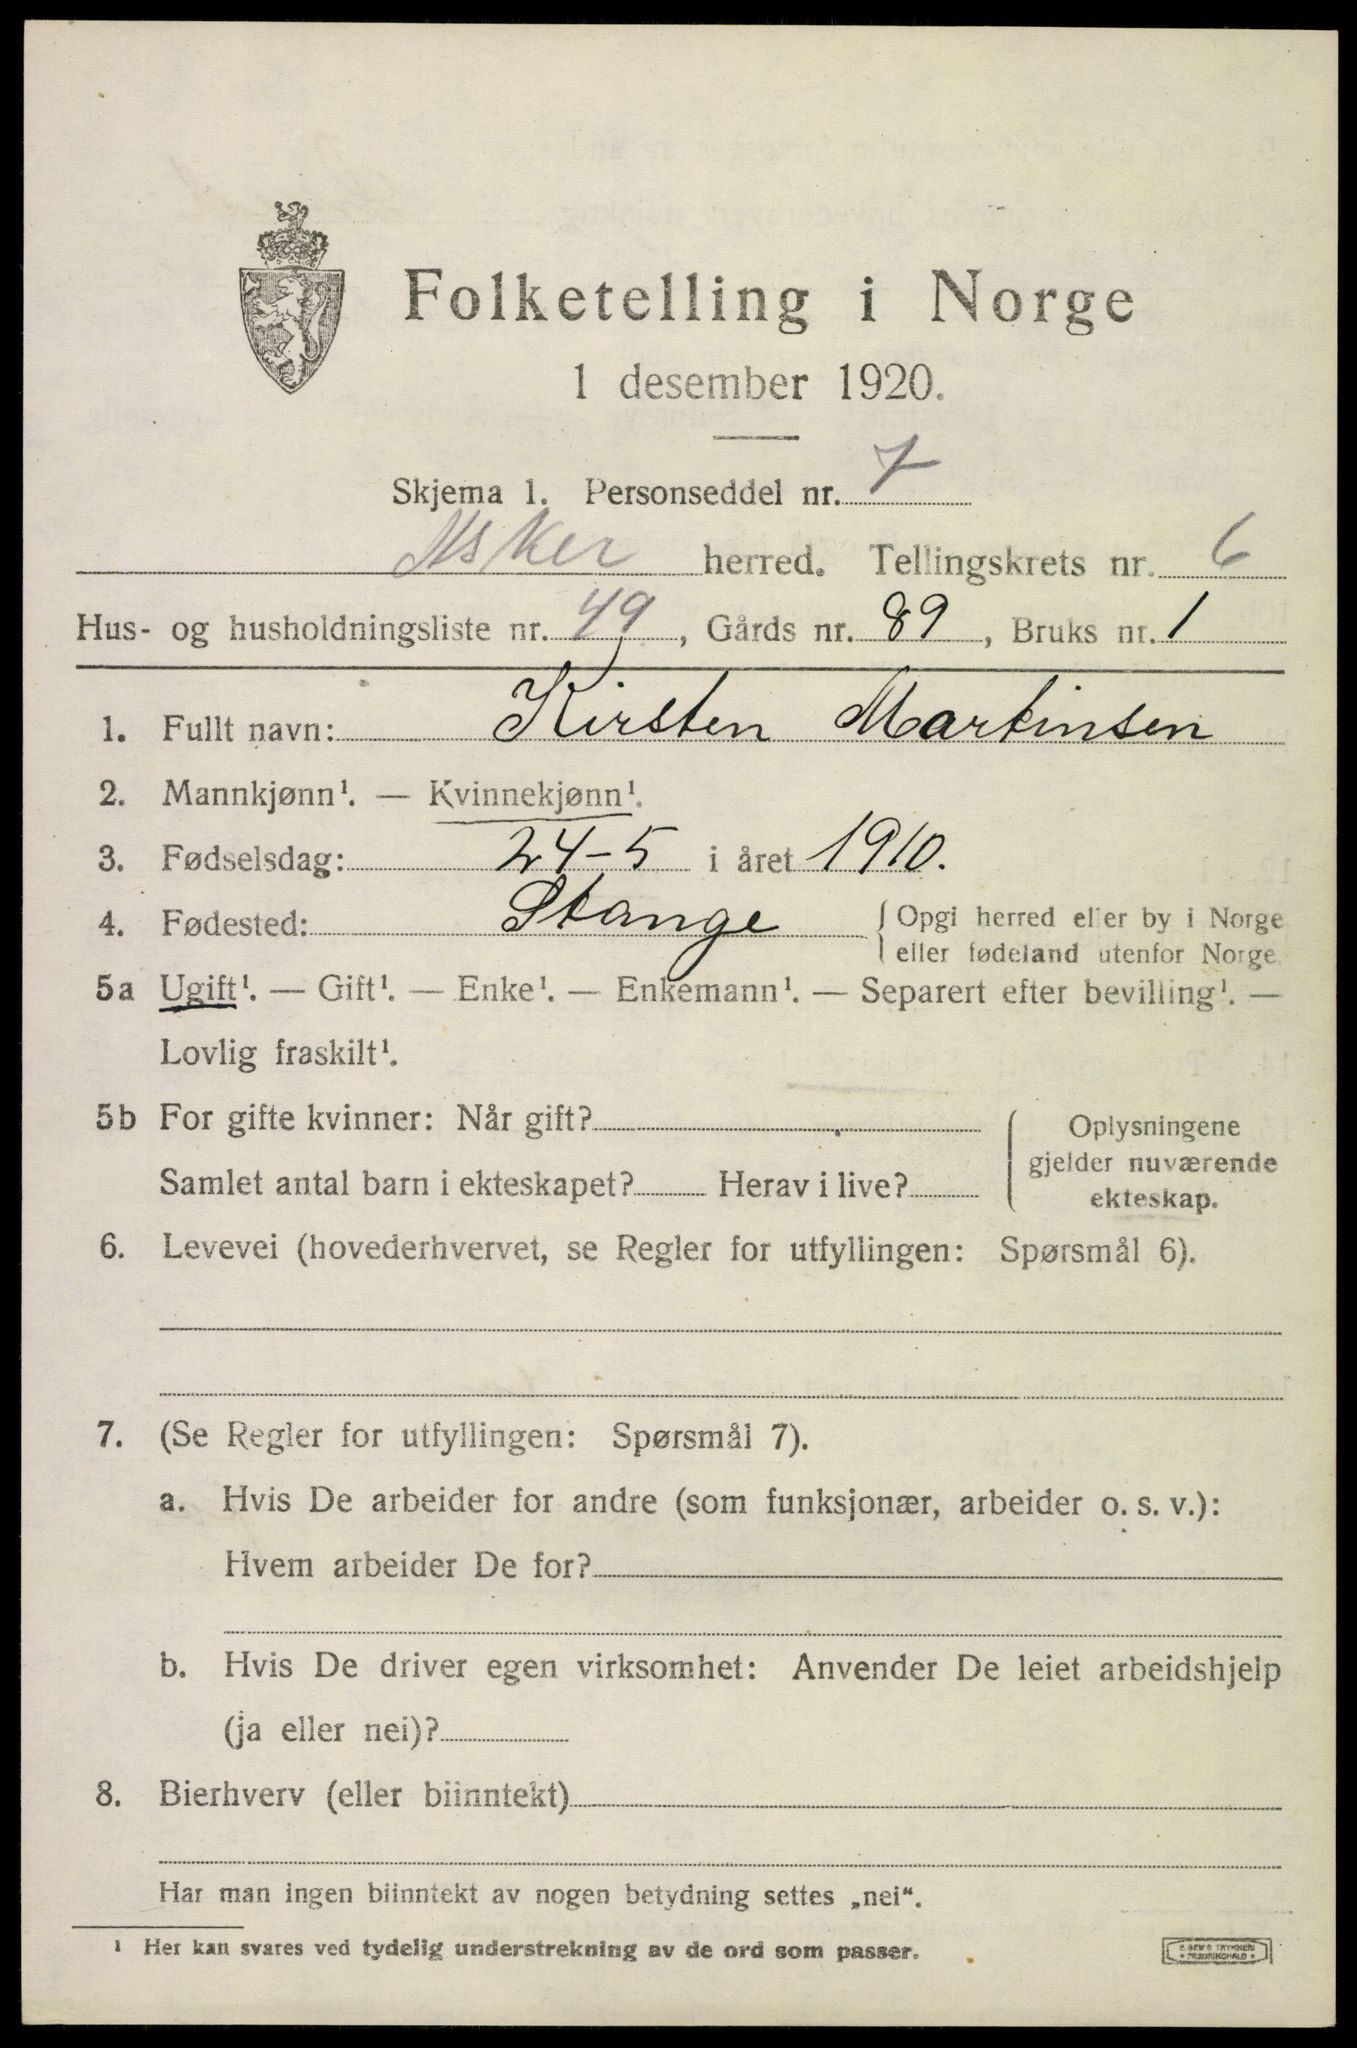 Folketelling i Norge
1 desember 1920.
Skjema 1. Personseddel nr. 7
Asker herred. Tellingskrets nr. 6
Hus- og husholdningsliste nr. 49, Gårds nr. 89, Bruks nr. 1
1. Fullt navn: Kirsten Martinsen
2. Mannkjønn¹. — Kvinnekjønn¹.
3. Fødselsdag: 24-5 i året 1910.
4. Fødested: Stange { Opgi herred eller by i Norge
eller fødeland utenfor Norge.
5a Ugift¹. — Gift¹. — Enke¹. — Enkemann¹. — Separert efter bevilling¹. —
Lovlig fraskilt¹.
5b For gifte kvinner: Når gift?
Samlet antal barn i ekteskapet? Herav i live?
Oplysningene
gjelder nuværende
ekteskap.
6. Levevei (hovederhvervet, se Regler for utfyllingen: Spørsmål 6).
7. (Se Regler for utfyllingen: Spørsmål 7).
a. Hvis De arbeider for andre (som funksjonær, arbeider o. s. v.):
Hvem arbeider De for?
b. Hvis De driver egen virksomhet: Anvender De leiet arbeidshjelp
(ja eller nei)?
8. Bierhverv (eller biinntekt)
Har man ingen biinntekt av nogen betydning settes „nei“.
¹ Her kan svares ved tydelig understrekning av de ord som passer.
TRYKKERI
FREDRIKSHALD